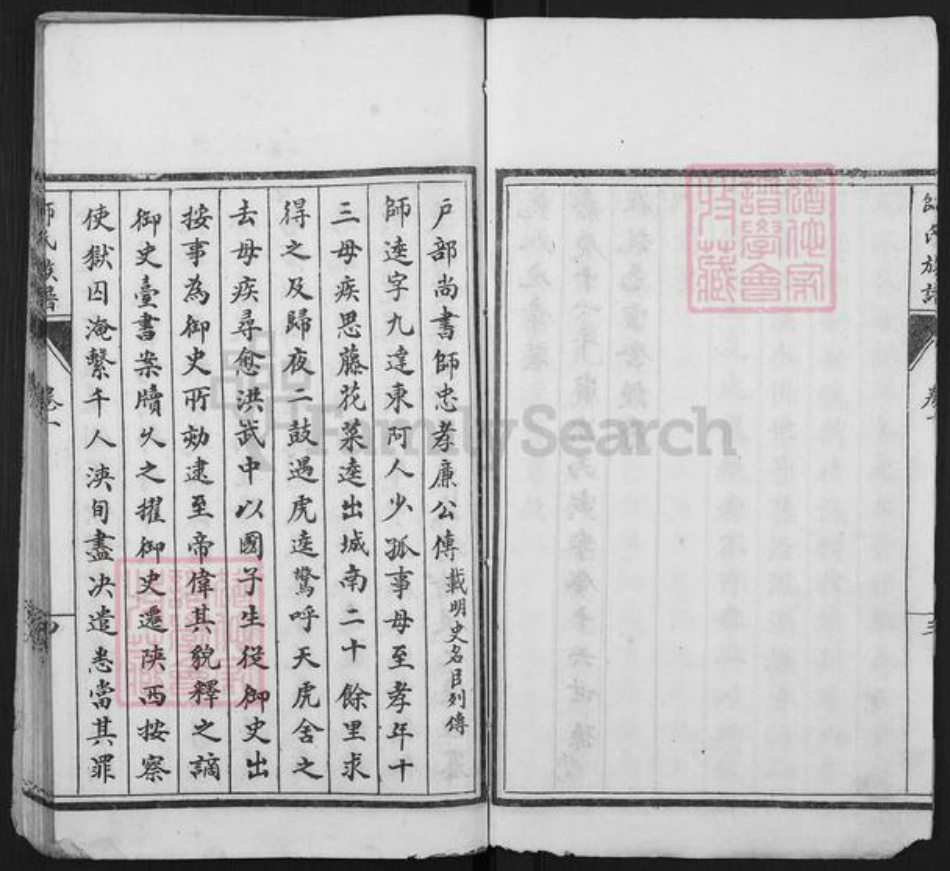 師氏族譜
卷一
戶部尚書師忠孝廉公傳 載明史名臣列傳
師逵字九達東阿人少孤事母至孝年十
三母疾思藤花菜逵出城南二十餘里求
得之及歸夜二鼓遇虎逵驚呼天虎舍之
去母疾尋愈洪武中以國子生從御史出
按事為御史所劾逮至帝偉其貌釋之謫
御史臺書案牘久之擢御史遷陝西按察
使獄囚淹繫千人浹旬盡決遣悉當其罪
師氏族譜
卷一
四
FamilySearch